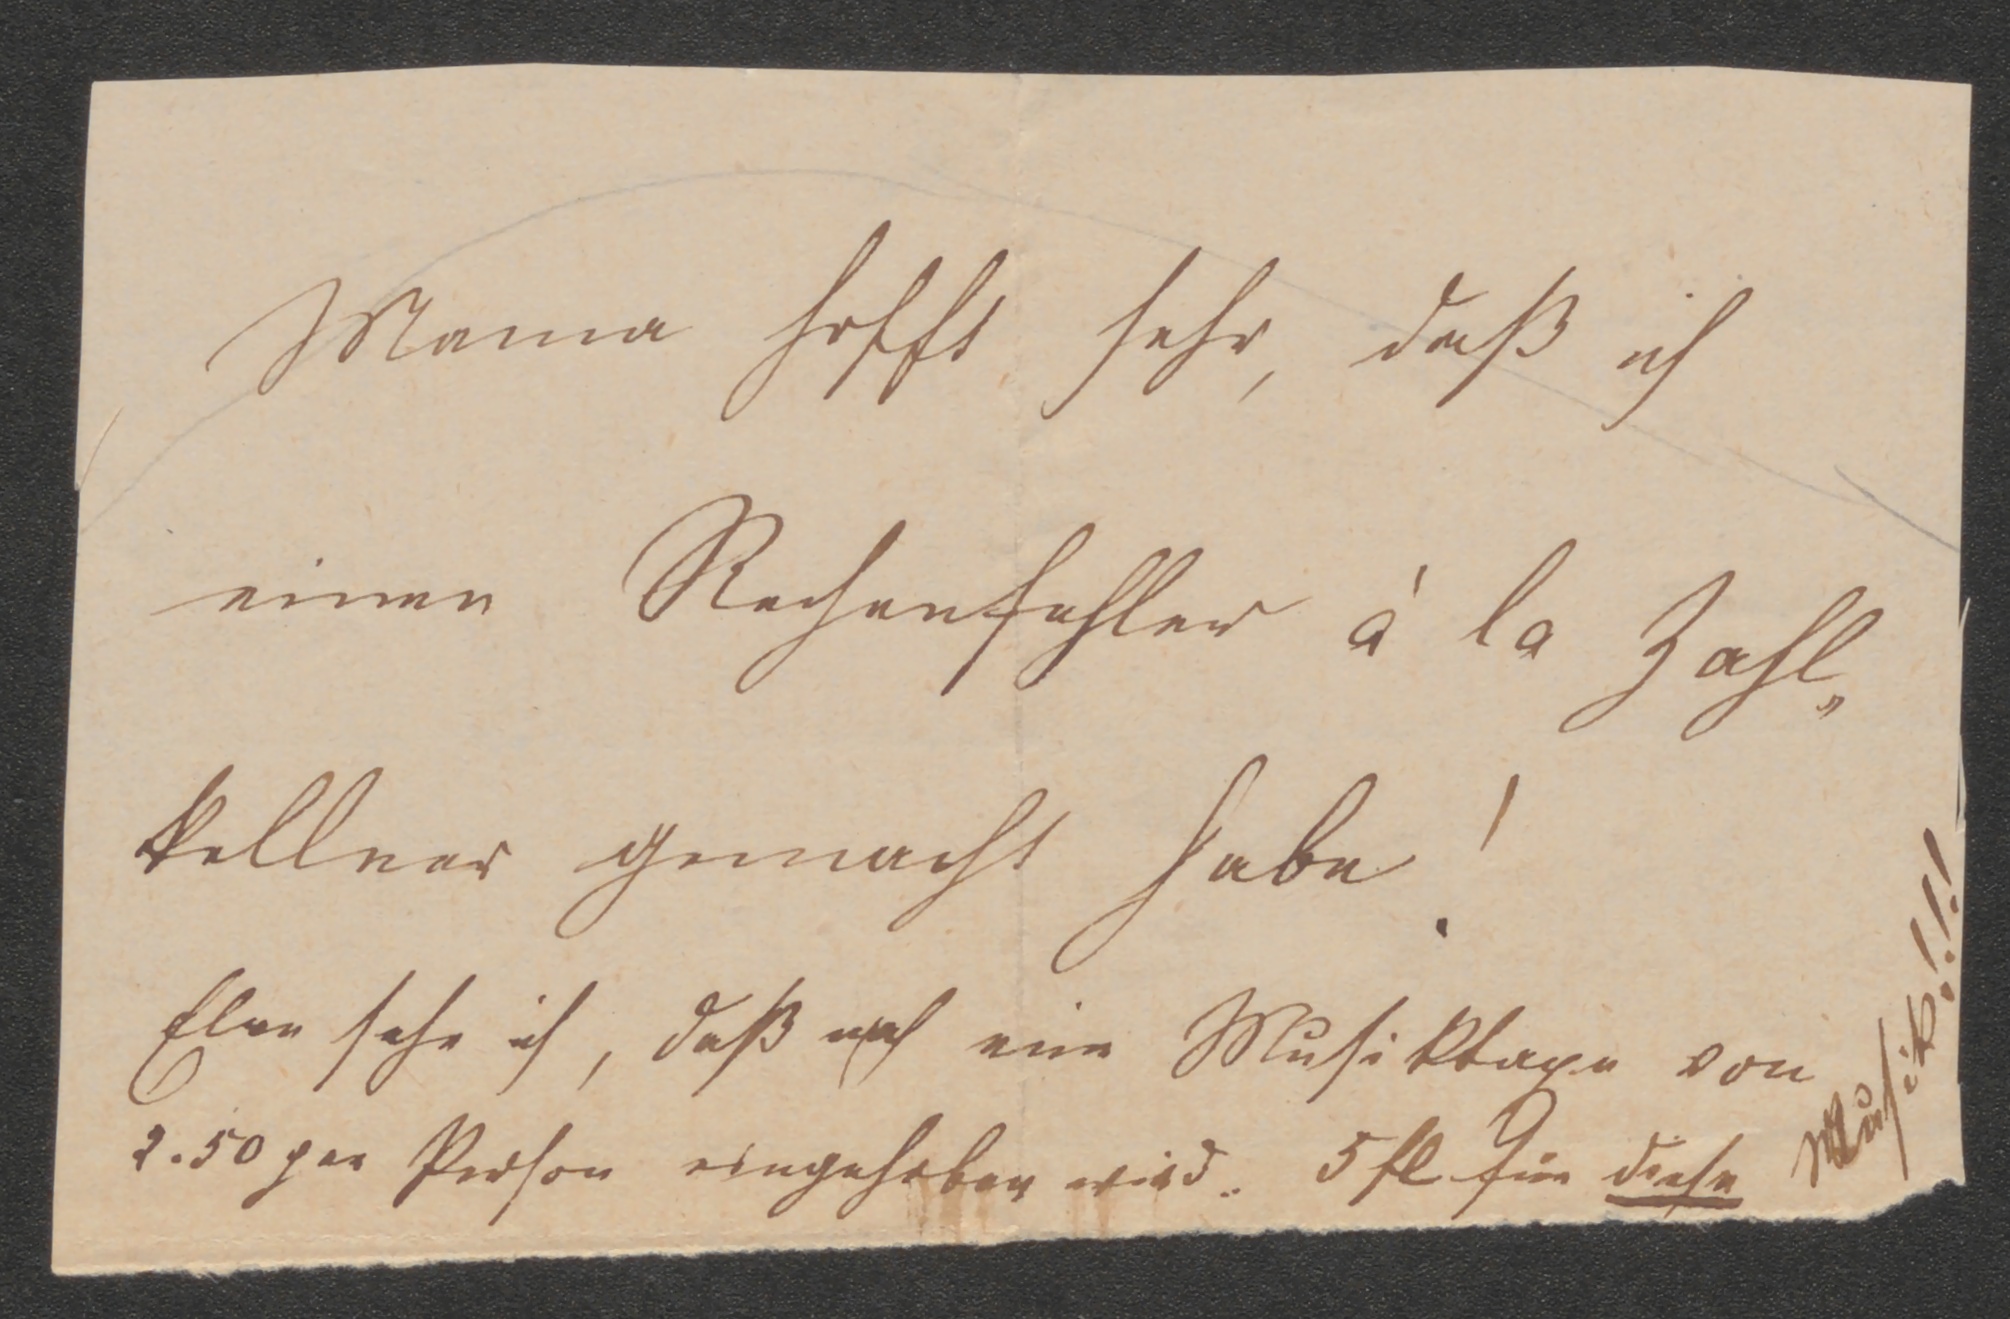 Mama hofft sehr, daß ich
einen Rechenfehler à la Zahl„
kellner gemacht habe!
Eben sehe ich, daß noch eine Musiktaxe von
2.50 per Person eingehoben wird. 5 fl für diese
Musik!!!